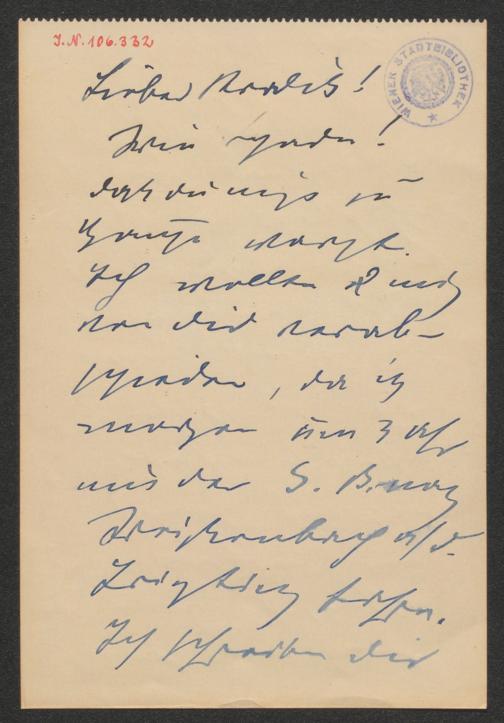 J.N. 106.332
WIENER STADTBIBLIOTHEK
Lieber !
Wie schade!
dass du nicht zu
Hause warst.
Ich wollte mich
von dir verab-
schieden, da ich
morgen um 3 Uhr
mit der nach
Weissenbach a/d.
Triesting fahre.
Ich schreibe dir